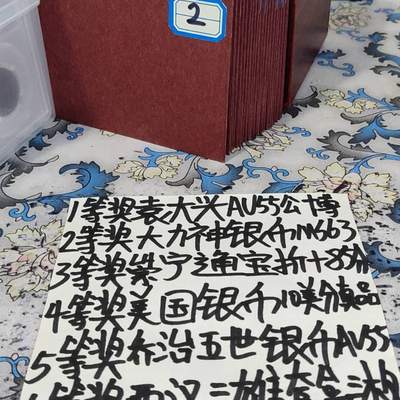 2
1等奖袁大头AU55公博
2等奖大力神银币MS63
3等奖崇宁通宝折十85分
4等奖美国银币10美分真品
5等奖乔治五世银币AU55
等奖西汉三雄套盒